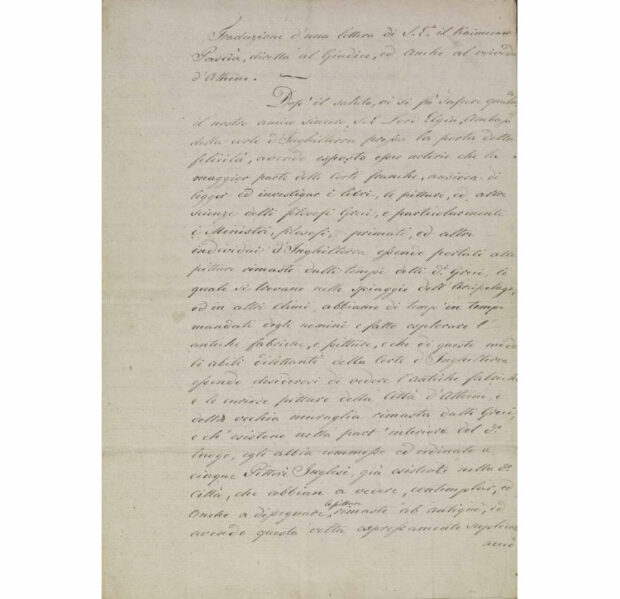 Traduzione d'una lettera di S. E. il Caimacam
Pascià, diretta al Giudice, ed anche al Vaivoda
d'Athene.
Dopo il saluto, vi si fa sapere qualm.
il nostro amico sincero S. E. Lord Elgin, Ambasc.
della corte d'Inghilterra presso la porta della
felicità, avendo esposto esser notorio che la
maggior parte delle Corti franche, ansiosa di
legger ed investigar i libri, le pitture, ed altre
scienze delli filosofi Greci, e particolarmente
i Ministri, filosofi, primati, ed altri
individui d'Inghilterra essendo portati alle
pitture rimaste dalli tempi delli d. Greci, le
quale si trovano nelle spiaggie dell'Arcipelago,
ed in altri climi, abbiano di temp' in tempo
mandati degli uomini e fatto esplorare l'
antiche fabriche, e pitture, e che di questo modo
li abili dilettanti della Corte d'Inghilterra
essendo desiderosi di vedere l'antiche fabriche
e le curiose pitture della Città d'Athene, e
della vecchia muraglia rimasta dalli Greci,
e ch'esistono nella part' interiore del d.
luogo, egli abbia commesso ed ordinato a
cinque Pittori Inglesi, già esistenti nella d.
Città, che abbian a vedere, contemplar, ed
anche a disegnare le pitture rimaste ab antiquo, ed
avendo questa volta espressamente supplicato
acciò